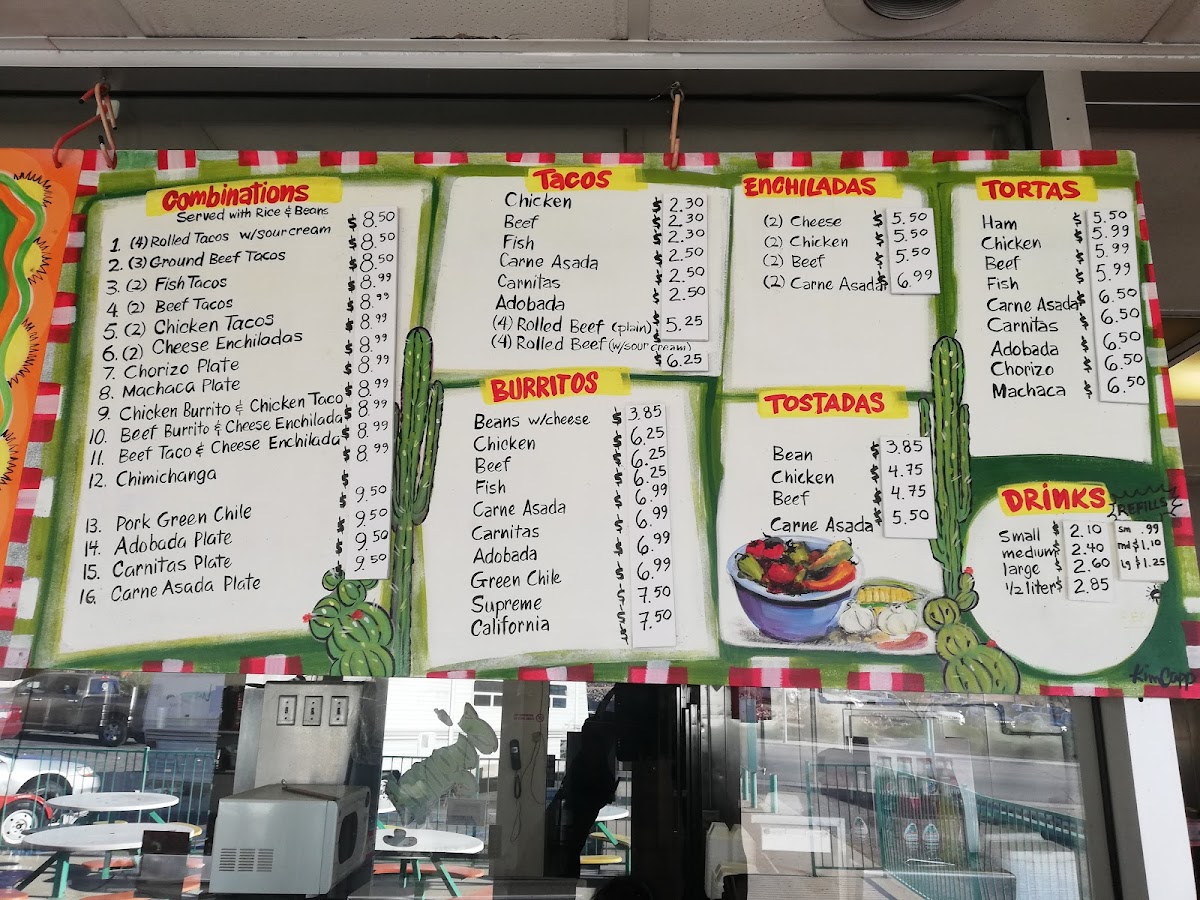 Combinations
Served with Rice & Beans
1. (4) Rolled Tacos w/sour cream $ 8.50
2. (3) Ground Beef Tacos $ 8.50
3. (2) Fish Tacos $ 8.50
4. (2) Beef Tacos $ 8.99
5. (2) Chicken Tacos $ 8.99
6. (2) Cheese Enchiladas $ 8.99
7. Chorizo Plate $ 8.99
8. Machaca Plate $ 8.99
9. Chicken Burrito & Chicken Taco $ 8.99
10. Beef Burrito & Cheese Enchilada $ 8.99
11. Beef Taco & Cheese Enchilada $ 8.99
12. Chimichanga $ 8.99
13. Pork Green Chile $ 9.50
14. Adobada Plate $ 9.50
15. Carnitas Plate $ 9.50
16. Carne Asada Plate $ 9.50
Tacos
Chicken $ 2.30
Beef $ 2.30
Fish $ 2.30
Carne Asada $ 2.50
Carnitas $ 2.50
Adobada $ 2.50
(4) Rolled Beef (plain) $ 5.25
(4) Rolled Beef (w/sour cream) $ 6.25
BURRITOS
Beans w/cheese $ 3.85
Chicken $ 6.25
Beef $ 6.25
Fish $ 6.25
Carne Asada $ 6.99
Carnitas $ 6.99
Adobada $ 6.99
Green Chile $ 6.99
Supreme $ 7.50
California $ 7.50
ENCHILADAS
(2) Cheese $ 5.50
(2) Chicken $ 5.50
(2) Beef $ 5.50
(2) Carne Asada $ 6.99
TOSTADAS
Bean $ 3.85
Chicken $ 4.75
Beef $ 4.75
Carne Asada $ 5.50
TORTAS
Ham $ 5.50
Chicken $ 5.99
Beef $ 5.99
Fish $ 5.99
Carne Asada $ 6.50
Carnitas $ 6.50
Adobada $ 6.50
Chorizo $ 6.50
Machaca $ 6.50
DRINKS
Small $ 2.10
medium $ 2.40
large $ 2.60
1/2 liter $ 2.85
REFILLS
sm .99
md $ 1.10
lg $ 1.25
Kim Capp